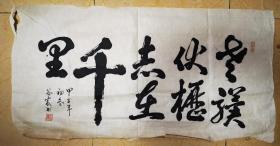 老骥
伏櫪
志在
千
里
甲午年
初春